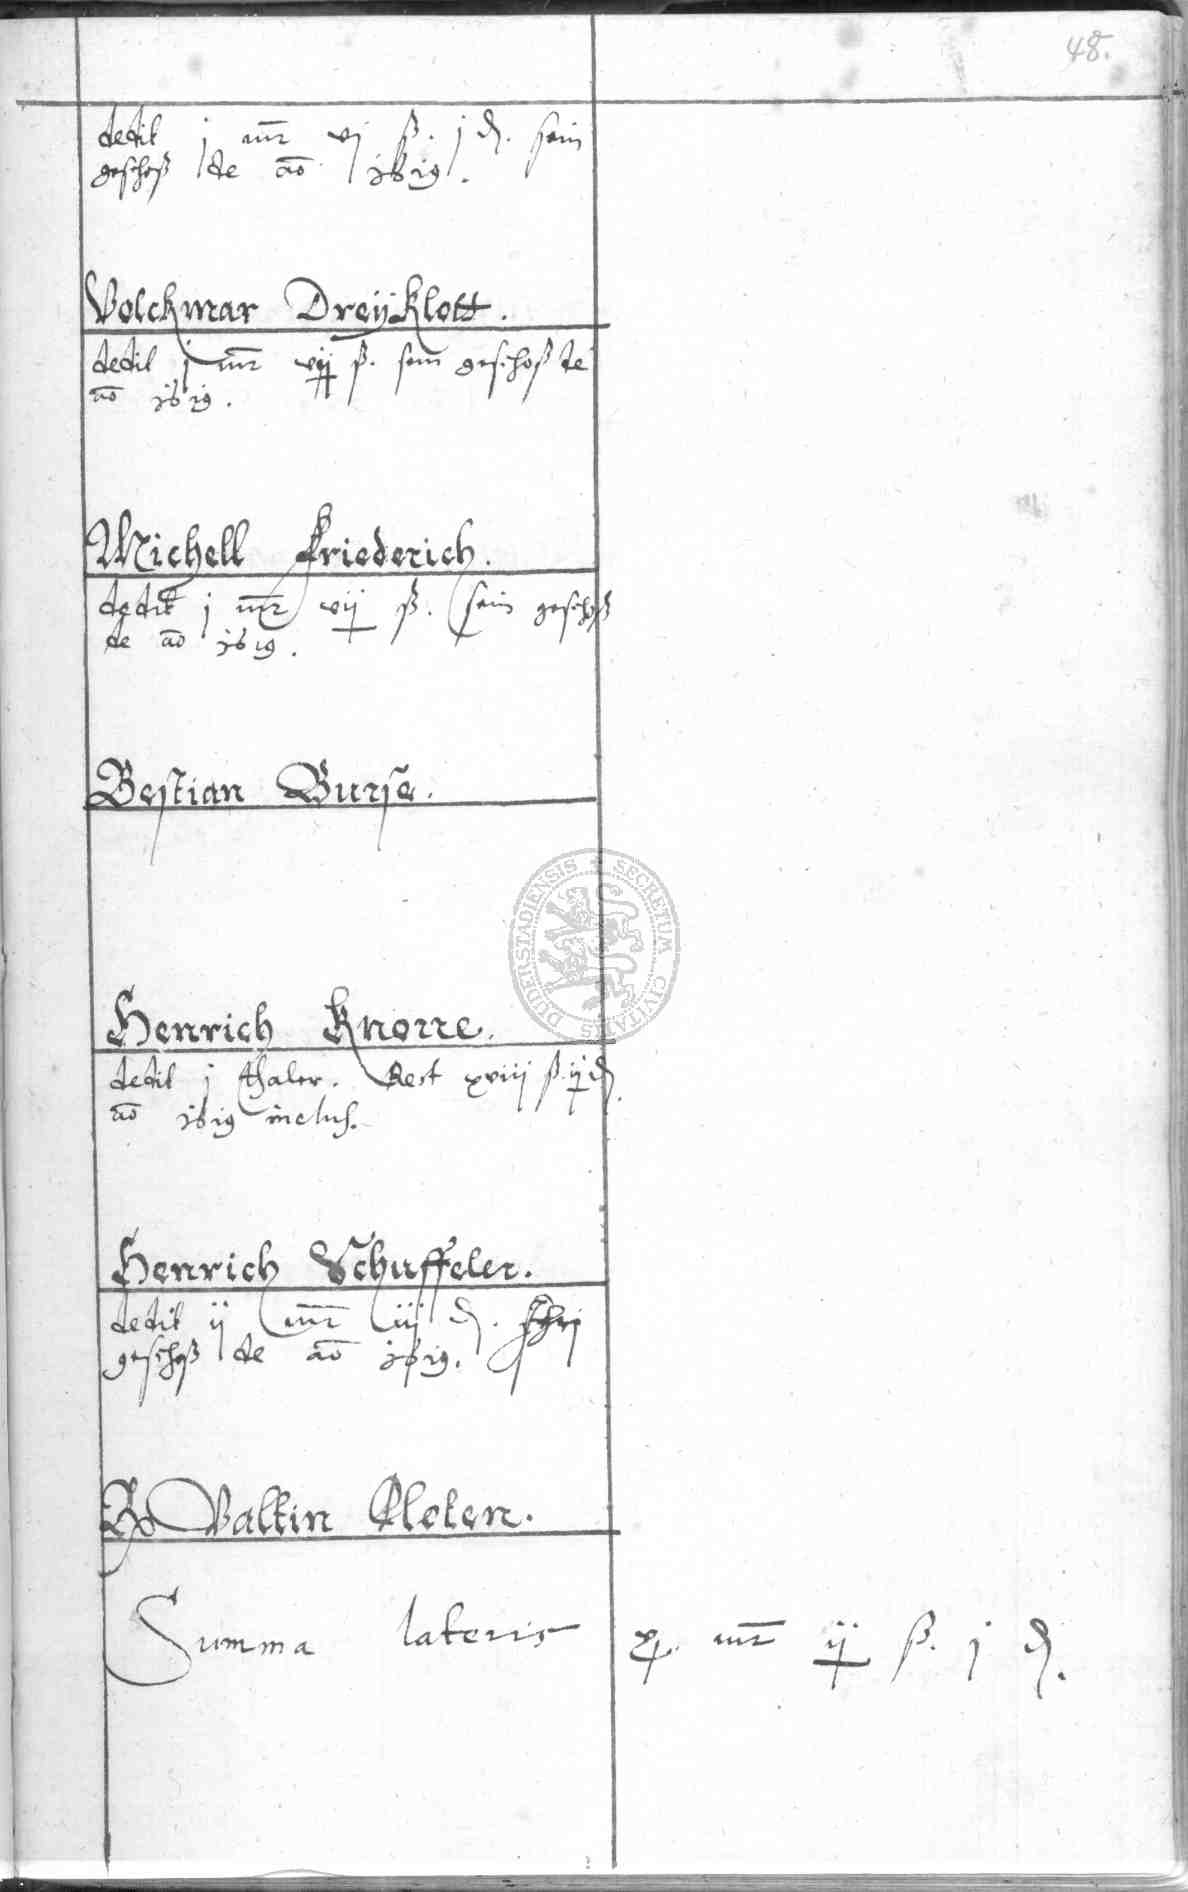 48.
dedit j mr vj ß. j d. sein
geschoß de ao 1619.
Volckmar Dreÿklott.
dedit j mr vij ß. sein geschoß de
ao 1619.
Michell Friederich.
dedit j mr vij ß. sein geschoß
de ao 1619.
Bestian Burse.
DUDERSTADIENSIS SECRETUM CIVITATIS
Henrich Knorre.
dedit j thaler. Rest xviij ß. ij d.
ao 1619 inclus.
Henrich Schuffeler.
dedit ij mr iij d.
geschoß de ao 1619.
Valtin
Summa lateris mr ij ß. j d.